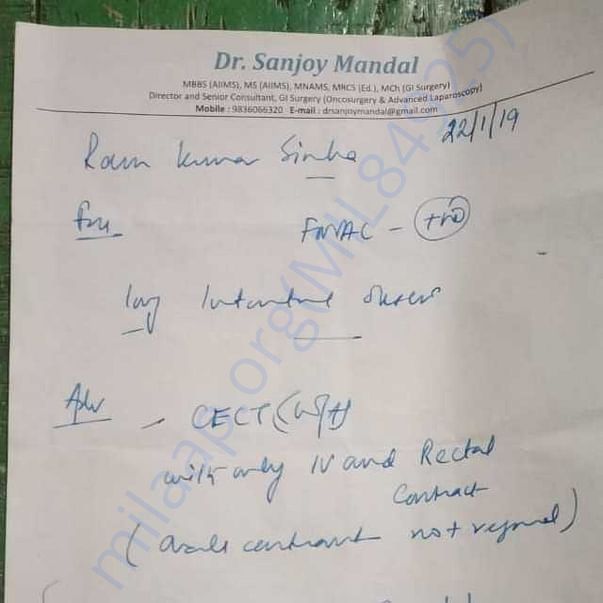 Dr. Sanjoy Mandal
MBBS (AIIMS), MS (AIIMS), MNAMS, MRCS (Ed.), MCh (GI Surgery)
Director and Senior Consultant, GI Surgery (Oncosurgery & Advanced Laparoscopy)
Mobile : 9836066320 E-mail : drsanjoymandal@gmail.com
22/1/19
Ram Kumar Sinha
FNAC - +ve
Adv
CECT (W/A)
with only IV and Rectal
Contrast
(oral contrast not required)
milaap.org(MIL84425)